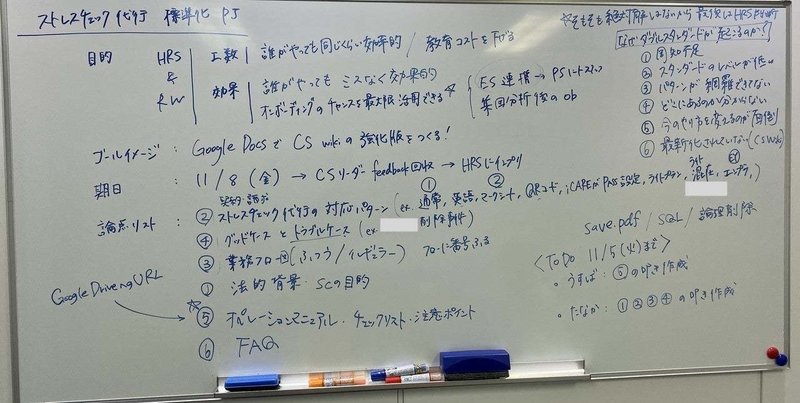 ストレスチェック代行 標準化 PJ
目的 HRS & RW
工数 誰がやっても同じくらい効率的 / 教育コストを下げる
効果 誰がやっても ミスなく効果的
オンボーディングのチャンスを最大限活用できる
ES連携 → PSハートストップ
集団分析後の ob
ゴールイメージ : Google Docs で CS wiki の強化版をつくる!
期日 : 11/8 (金) → CSリーダー feedback回収 → HRSにインプリ
論点リスト :
② ストレスチェック代行の 対応パターン (ex. 通常, 英語, マークシート, QRコード, iCAREがPASS設定, ライトプラン,
④ グッドケース と トラブルケース (ex. 削除事件
③ 業務フロー図 (ふつう / イレギュラー) フローに番号ふる
① 法的背景・SCの目的
Google DriveのURL
☆⑤ オペレーションマニュアル・チェックリスト・注意ポイント
⑥ FAQ
なぜダブルスタンダードが起こるのか?
① 周知不足
② スタンダードのレベルが低い
③ パターンが網羅できてない
④ どこにあるのか分からない
⑤ 今のやり方を変えるのが面倒
⑥ 最新化されていない (CS wiki)
save.pdf / SQL / 論理削除
<ToDo 11/5(火)まで>
・うすば : ⑤の叩き作成
・たなか : ①②③④の叩き作成